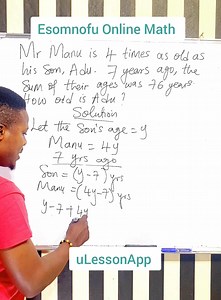 Esomnofu Online Math
Mr Manu is 4 times as old as
his Son, Adu. 7 years ago, the
Sum of their ages was 76 years
How old is Adu?
Solution
Let the Son's age = y
Manu = 4y
7 yrs ago
Son = (y-7) yrs
Manu = (4y-7) yrs
y-7+4y
uLessonApp